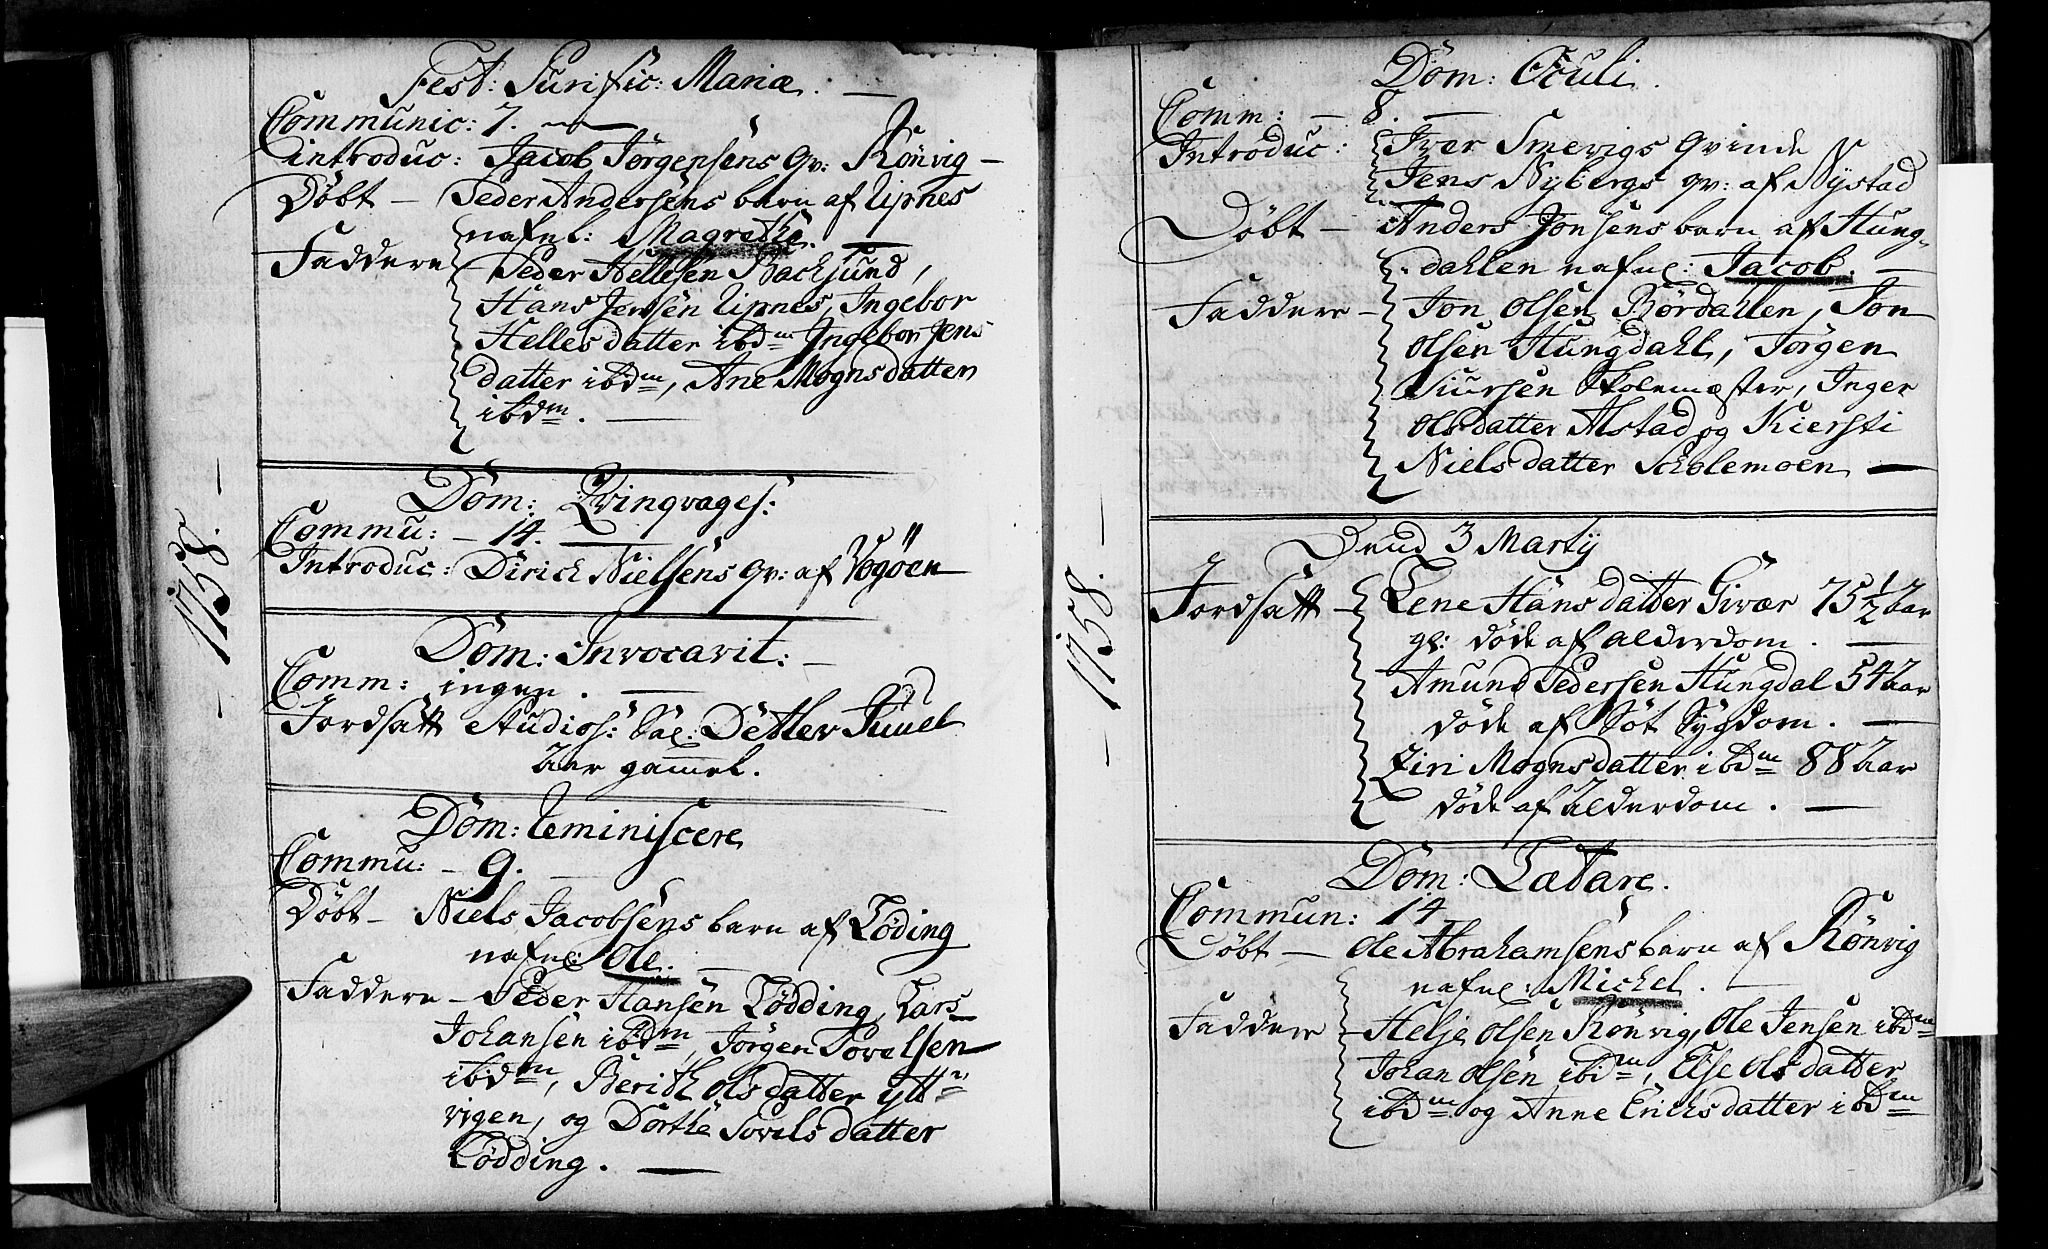 Fest: Purific: Mariæ. —
Communic: 7. —
introduc: Jacob Jørgensens qv: Rönvig —
Döbt — Peder Andersens barn af Lipnes
nafnl: Magrethe. —
Faddere Peder Hellesen Backsund,
Hans Jensen Lipnes, Ingebor
Hellesdatter ibdm Ingebor Jens
datter ibdm, Ane Mognsdatter
ibdm. —
— 1758. —
Dom: Qvinqvages:
Commu: — 14. —
Introduc: Dirich Nielsens qv: af Vogöen
Dom: Invocavit: —
Comm: ingen. —
Jordsatt Studios: Sal: Detlev Juul
Aar gamel.
Dom: Reminiscere
Commu: — 9. —
Döbt — Niels Jacobsens barn af Löding
nafnl: Ole. —
Faddere — Peder Hansen Lödding, Lars
Johansen ibdm, Jörgen Povelsen
ibdm, Berith Olsdatter ytt
vigen, og Dorthe Povelsdatter
Lödding. —
Dom: Oculi.
Comm: — 8. —
Introduc: Iver Smevigs qvinde
Jens Nybergs qv: af Nystad
Döbt — Anders Jonsens barn af Hung-
dahlen nafnl: Jacob. —
Faddere — Jon Olsen Rördahlen, Jon
Olsen Hungdahl, Jørgen
Siursen Skolemæster, Inger
Olsdatter Alstad og Kiersti
Nielsdatter Scholemoen —
— 1758. —
Dend 3 Martij
Jordsatt — Lene Hansdatter Givær 75 1/2 Aar
gl: döde af alderdom. —
Amund Pedersen Hungdal 54 Aar
döde af Söt Sygdom. —
Ziri Mognsdatter ibdm 88 Aar
döde af Alderdom. —
Dom: Lætare.
Commun: 14
Döbt — Ole Abrahamsens barn af Rönvig
nafnl: Michel. —
Faddere — Helje Olsen Rönvig, Ole Jensen ibdm
Johan Olsen ibdm, Else Olsdatter
ibdm og Anne Ericksdatter ibdm